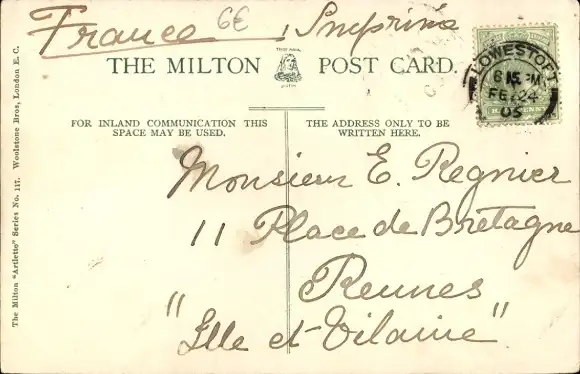 France 6€ , Imprimé
THE MILTON POST CARD.
FOR INLAND COMMUNICATION THIS
SPACE MAY BE USED.
THE ADDRESS ONLY TO BE
WRITTEN HERE.
LOWESTOFT
6 15 PM
FE 24
05
Monsieur E. Regnier
11 Place de Bretagne
Rennes
"Ille et-Vilaine"
The Milton "Artlette" Series No. 117. Woolstone Bros, London E. C.